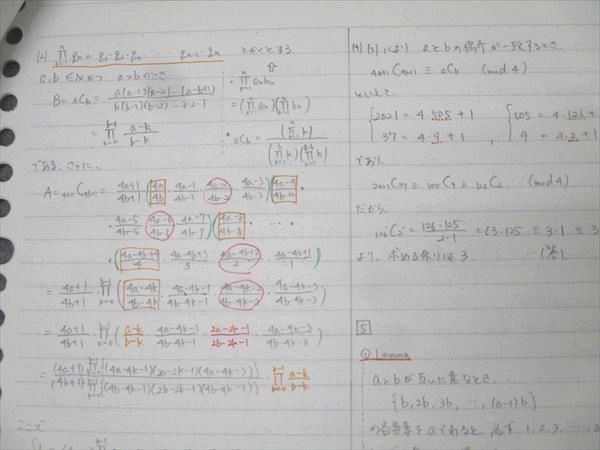 (2) \prod_{k=1}^{n} a_k = a_1・a_2・a_3・ … a_{n-1}・a_n とかくとする
a, b ∈ N かつ a > b のとき
B = aCb = \frac{a(a-1)(a-2)…(a-b+1)}{b(b-1)(b-2)…3・2・1}
= \prod_{k=0}^{b-1} \frac{a-k}{b-k}
・\prod_{k=1}^{n} a_k b_k
= (\prod_{k=1}^{n} a_k)(\prod_{k=1}^{n} b_k)
・aCb =
である。さらに、
A = 4a+1C4b+1 = \frac{4a+1}{4b+1} (\frac{4a}{4b}・\frac{4a-1}{4b-1}・\frac{4a-2}{4b-2}・\frac{4a-3}{4b-3})(\frac{4a-4}{4b-4}
・\frac{4a-5}{4b-5}・\frac{4a-6}{4b-6}・\frac{4a-7}{4b-7})(\frac{4a-8}{4b-8}・ …
・(\frac{4a-4b+4}{4}・\frac{4a-4b+3}{3}・\frac{4a-4b+2}{2}・\frac{4a-4b+1}{1})
= \frac{4a+1}{4b+1}・\prod_{k=0}^{b-1} (\frac{4a-4k}{4b-4k}・\frac{4a-4k-1}{4b-4k-1}・\frac{4a-4k-2}{4b-4k-2}・\frac{4a-4k-3}{4b-4k-3})
= \frac{4a+1}{4b+1}・\prod_{k=0}^{b-1} (\frac{a-k}{b-k}・\frac{4a-4k-1}{4b-4k-1}・\frac{2a-2k-1}{2b-2k-1}・\frac{4a-4k-3}{4b-4k-3})
= \frac{(4a+1)\prod_{k=0}^{b-1}{(4a-4k-1)(2a-2k-1)(4a-4k-3)}}{(4b+1)\prod_{k=0}^{b-1}{(4b-4k-1)(2b-2k-1)(4b-4k-3)}}・\prod_{k=0}^{b-1} \frac{a-k}{b-k}
ここで
(4) (3)により aとbの偶奇が一致するとき、
4a+1C4b+1 ≡ aCb (mod 4)
といえて、
{ 2021 = 4・505 + 1
37 = 4・9 + 1 ,
{ 505 = 4・126 +
9 = 4・2 + 1
であり
2021C37 ≡ 505C9 ≡ 126C2 (mod 4)
だから
126C2 = \frac{126・125}{2・1} = 63・125 ≡ 3・1 ≡ 3
より、求める余りは 3 …(答)
5
Lemma
aとbが互いに素なとき、
{b, 2b, 3b, …, (a-1)b}
の各要素をaでわると、必ず 1, 2, 3, …,